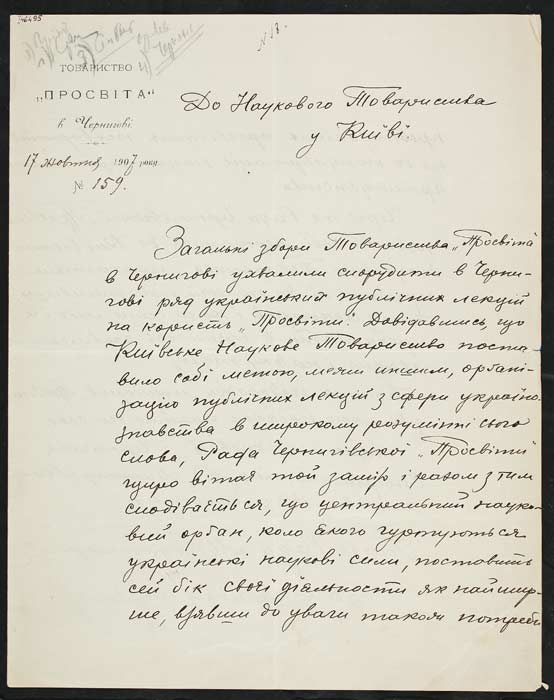 36495
N 18.
ТОВАРИСТВО
„ПРОСВІТА“
в Чернигові.
17 жовтня 1907 року
№ 159.
До Наукового Товариства
у Київі.
Загальні збори Товариства „Просвіта“
в Чернигові ухвалили спорудити в Черни-
гові ряд український публічних лекцій
на користь „Просвіти“. Довідавшись, що
Київське Наукове Товариство поста-
вило собі метою, межи иншим, органі-
зацію публічних лекцій з сфери україно-
знавства в широкому розумінні сього
слова, Рада Чернигівської „Просвіти“
щиро вітає той замір і разом з тим
сподівається, що центральний науко-
вий орган, коло якого гуртуються
українські наукові сили, поставить
сей бік своєї діяльности як найшир-
ше, взявши до уваги також потреби